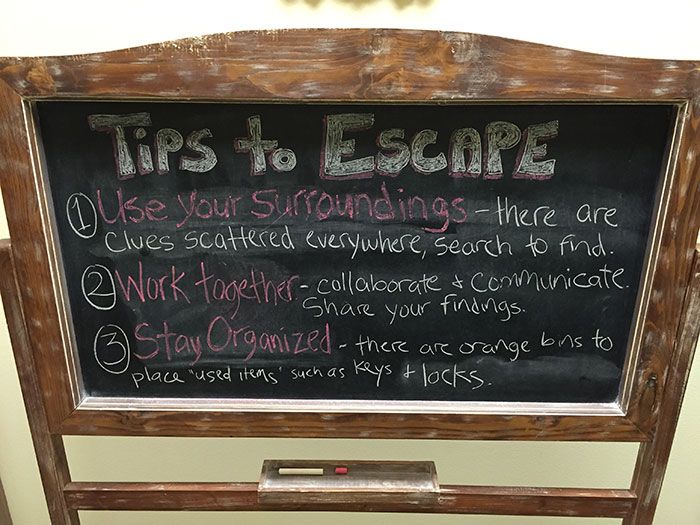 Tips to Escape
① Use Your Surroundings - there are
clues scattered everywhere, search to find.
② Work together - collaborate & communicate.
Share your findings.
③ Stay Organized - there are orange bins to
place "used items" such as keys & locks.